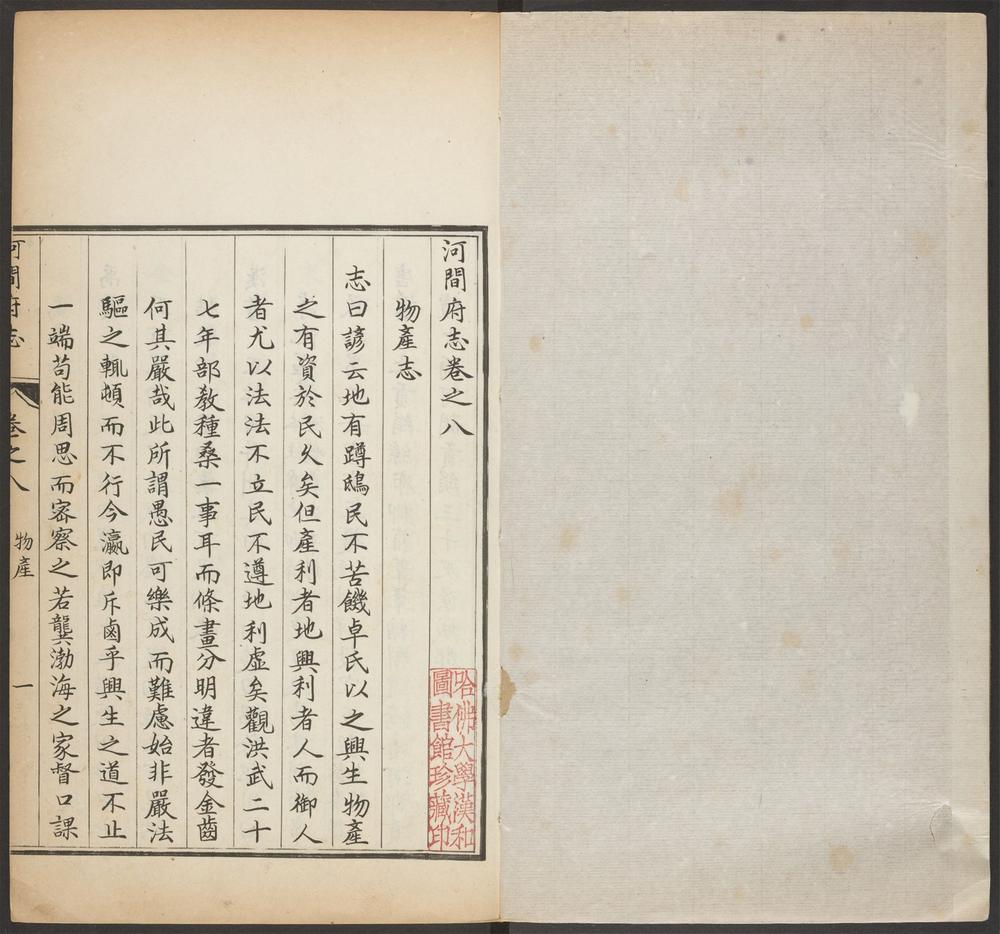 河間府志卷之八
物產志
志曰諺云地有蹲鴟民不苦饑卓氏以之興生物產
之有資於民久矣但產利者地興利者人而御人
者尤以法法不立民不遵地利虛矣觀洪武二十
七年部教種桑一事耳而條畫分明違者發金齒
何其嚴哉此所謂愚民可樂成而難慮始非嚴法
驅之輒頓而不行今瀛即斥鹵乎興生之道不止
一端苟能周思而密察之若龔渤海之家督口課
河間府志 卷之八 物產 一
哈佛大學漢和
圖書館珍藏印